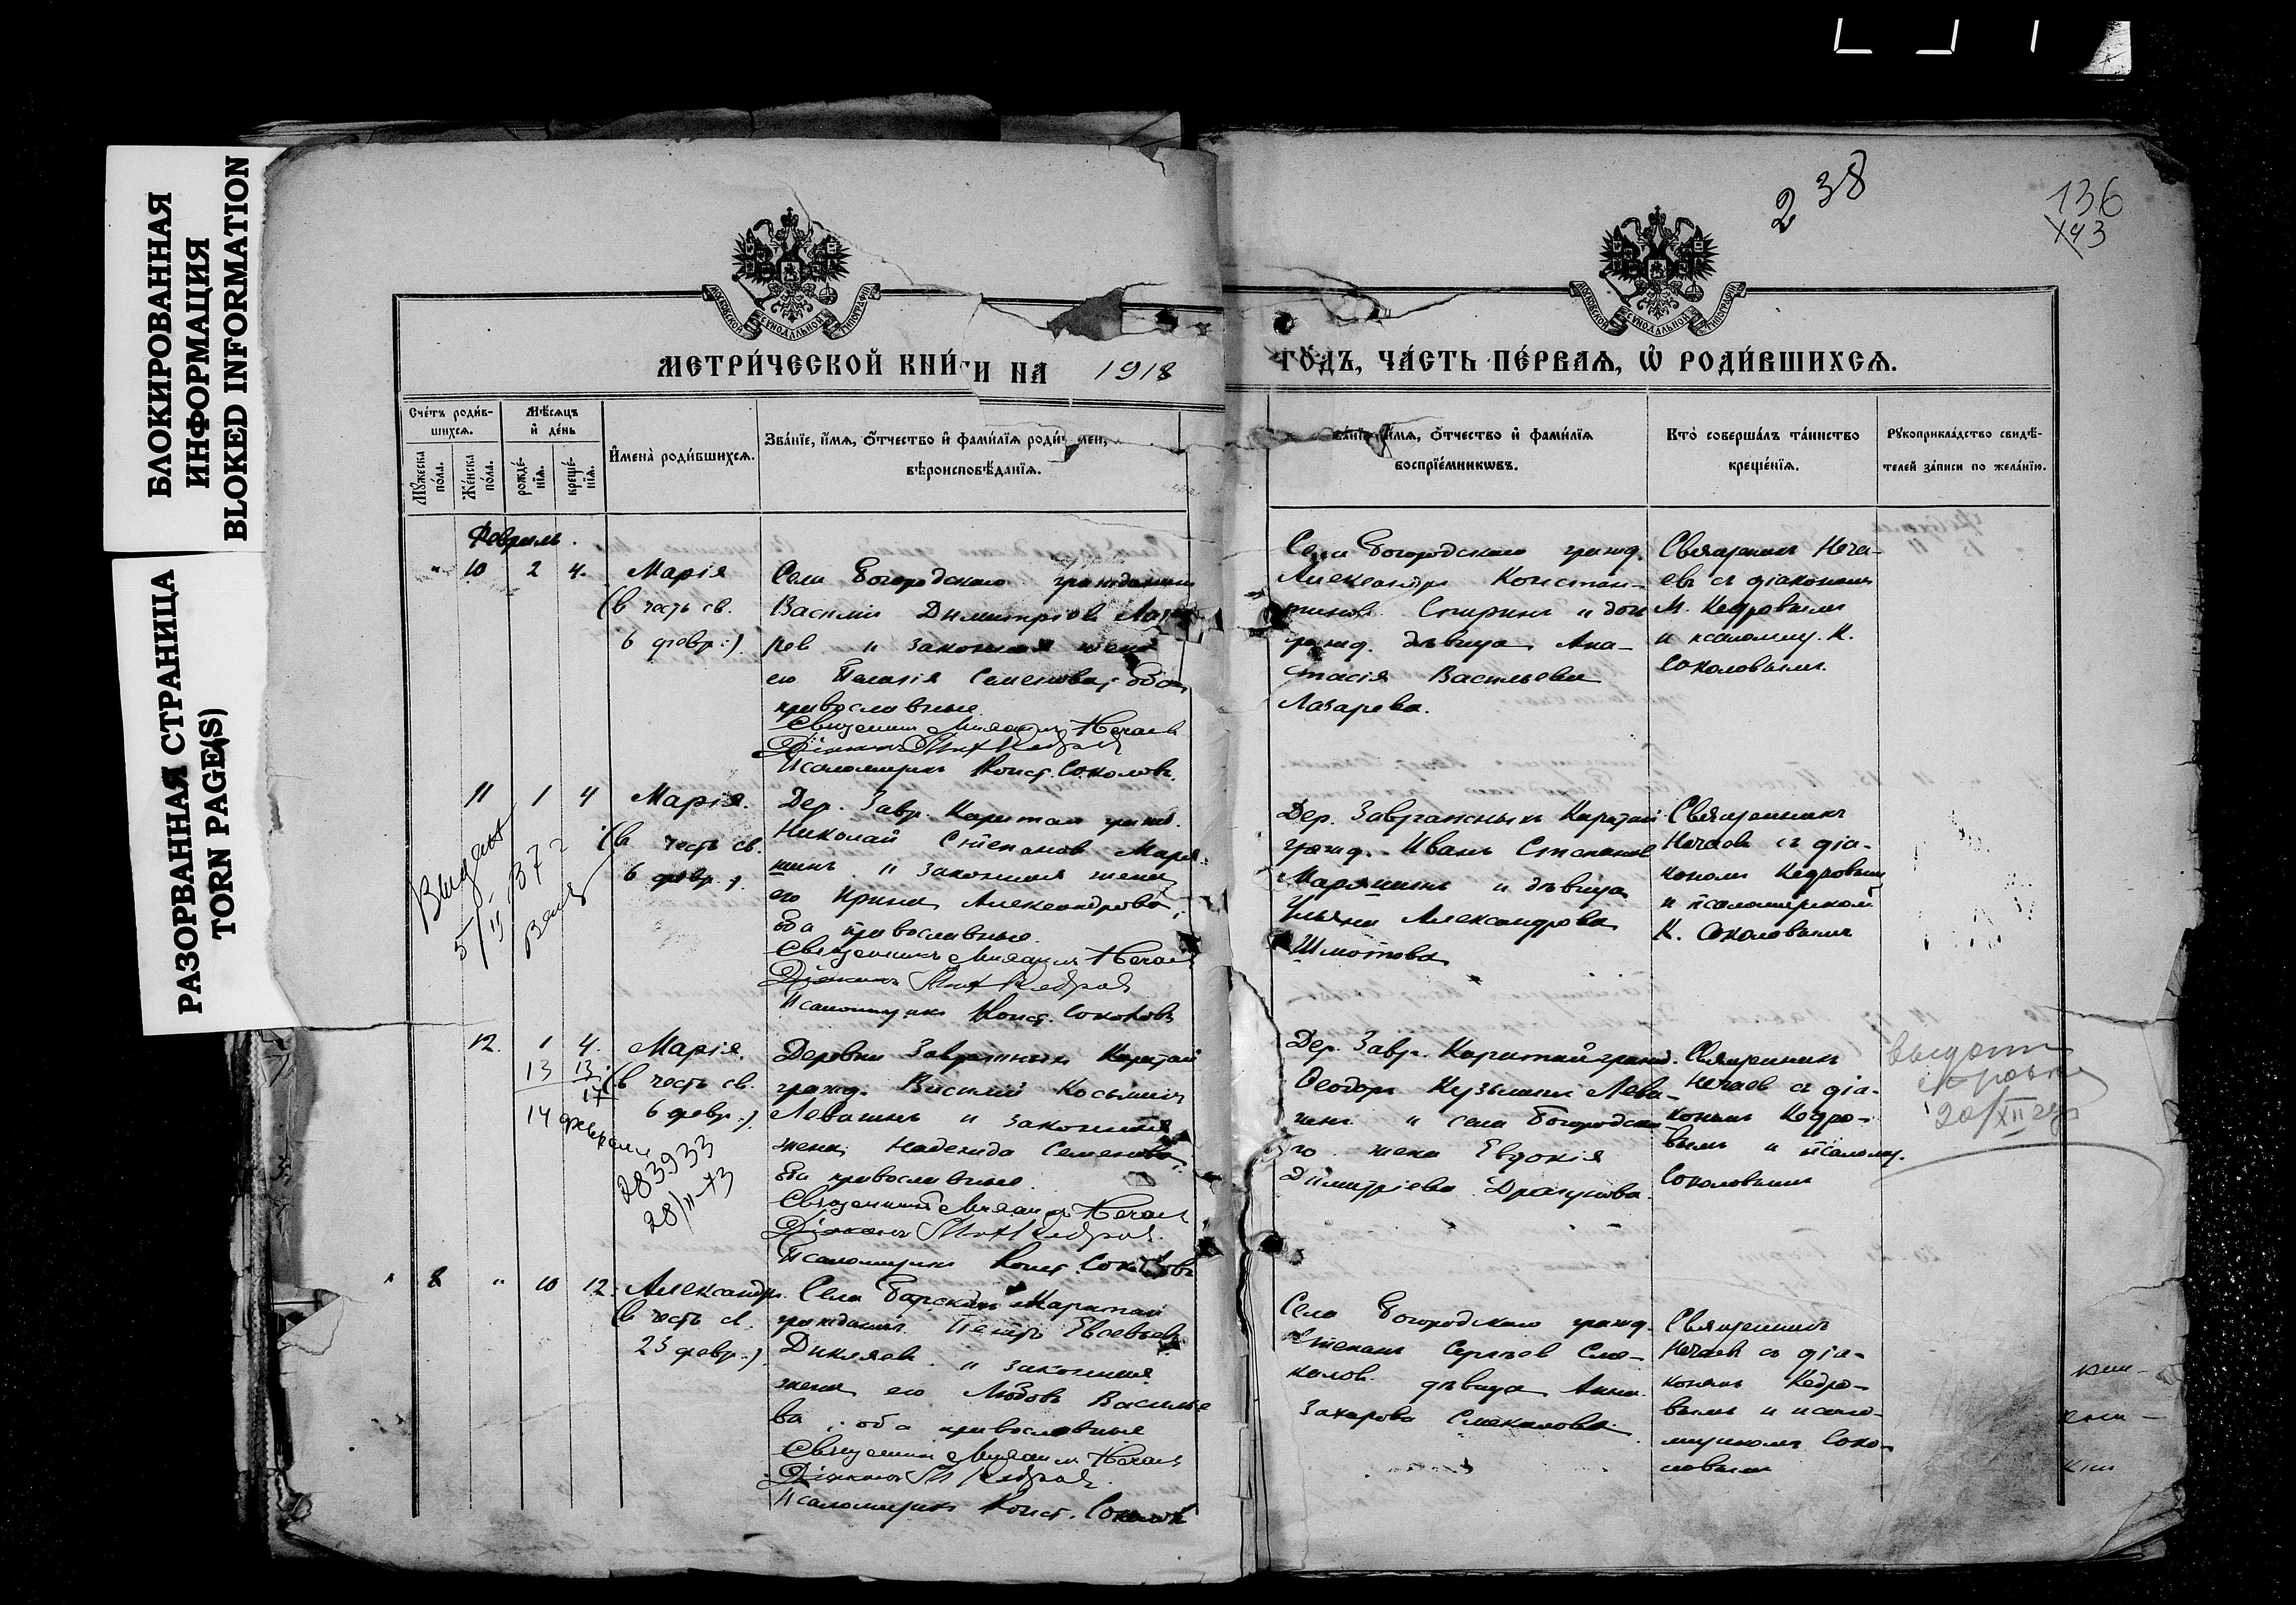 БЛОКИРОВАННАЯ
ИНФОРМАЦИЯ
BLOKED INFORMATION
РАЗОРВАННАЯ СТРАНИЦА
TORN PAGE(S)
238
136
143
МОСКОВСКОЙ СѴНОДАЛЬНОЙ ТИПОГРАФІИ
МОСКОВСКОЙ СѴНОДАЛЬНОЙ ТИПОГРАФІИ
МЕТРИ́ЧЕСКОЙ КНИ́ГИ НА 1918
ГО́ДЪ, ЧА́СТЬ ПЕ́РВАЯ, Ѡ҆ РОДИ́ВШИХСЯ.
Сче́тъ роди́в-
шихся.
Мꙋ́жеска
по́ла.
Же́нска
по́ла.
Мѣ́сяцъ
и҆ де́нь
рожде́-
нїя.
креще́-
нїя.
И҆мена̀ роди́вшихся.
Зва́нїе, и҆́мя, ѻ҆́тчество и҆ фами́лїя роди́
вѣроисповѣ́данїя.
и҆́мя, ѻ҆́тчество и҆ фами́лїя
воспрїе́мникѡвъ.
Кто̀ соверша́лъ та́инство
креще́нїя.
Рꙋкоприкла́дство свидѣ́-
телей за́писи по жела́нїю.
Февраль.
" 10 2 4.
Марія
(в честь св.
6 февр.)
Села Богородскаго гражданин
Василий Димитріов Лаза
рев и законная жена
его Пелагія Семенова; оба
православные.
Священник Михаил Нечаев
Діакон Мих Кедров
Псаломщикъ Конст. Соколовъ.
Села Богородскаго гражд.
Александръ Констан-
тинов Спирин и дочь
гражд. дѣвица Ана-
стасія Васильева
Лазарева.
Священникъ Неча-
евъ съ діакономъ
М. Кедровымъ
и псаломщ. К.
Соколовымъ.
11 1 4
Марія.
(в честь св.
6 февр.)
Дер. Завр. Каратай гражд.
Николай Степанов Маря-
шинъ и законная жена
его Ирина Александрова,
оба православные.
Священникъ Михаилъ Нечаев
Діаконъ Мих Кедров
Псаломщикъ Конст. Соколовъ
Дер. Завражныхъ Каратай
гражд. Иванъ Степанов
Маряшинъ и дѣвица
Ульяна Александрова
Шмотова
Священникъ
Нечаевъ съ діа-
кономъ Кедровым
и псаломщиком
К. Соколовымъ
Выдан
5/II 37
12. 1 4.
13 13
17
14 февраля
Марія.
(в честь св.
6 февр.)
283933
28/II-73
Деревни Завражныхъ Каратай
гражд. Василий Косьмин
Левашинъ и законная
жена Надежда Семенова.
Оба православные.
Священникъ Михаилъ Нечаев
Діаконъ Мих Кедров.
Псаломщикъ Конст. Соколовъ
Дер. Завр. Каратай гражд.
Феодоръ Кузьминъ Лева-
шинъ и села Богородска-
го жена Евдокія
Димитріева Драгунова.
Священникъ
Нечаев съ діа-
кономъ Кедро-
вымъ и псаломщ.
Соколовымъ
Выдан
20/XII
" 8 " 10 12.
Александръ.
(в честь св.
23 февр.)
Села Барских Каратай
гражданинъ Петръ Евсевьев
Дикляев и законная
жена его Любовь Василье
ва; оба православные
Священникъ Михаил Нечаев
Діаконъ М Кедров.
Псаломщикъ Конст. Соколов
Село Богородскаго гражд.
Степанъ Сергѣев Сма-
калов. дѣвица Анна
Захарова Смакалова.
Священникъ
Нечаевъ съ діа-
кономъ Кедро-
вымъ и псало-
мщикомъ Соко-
ловымъ